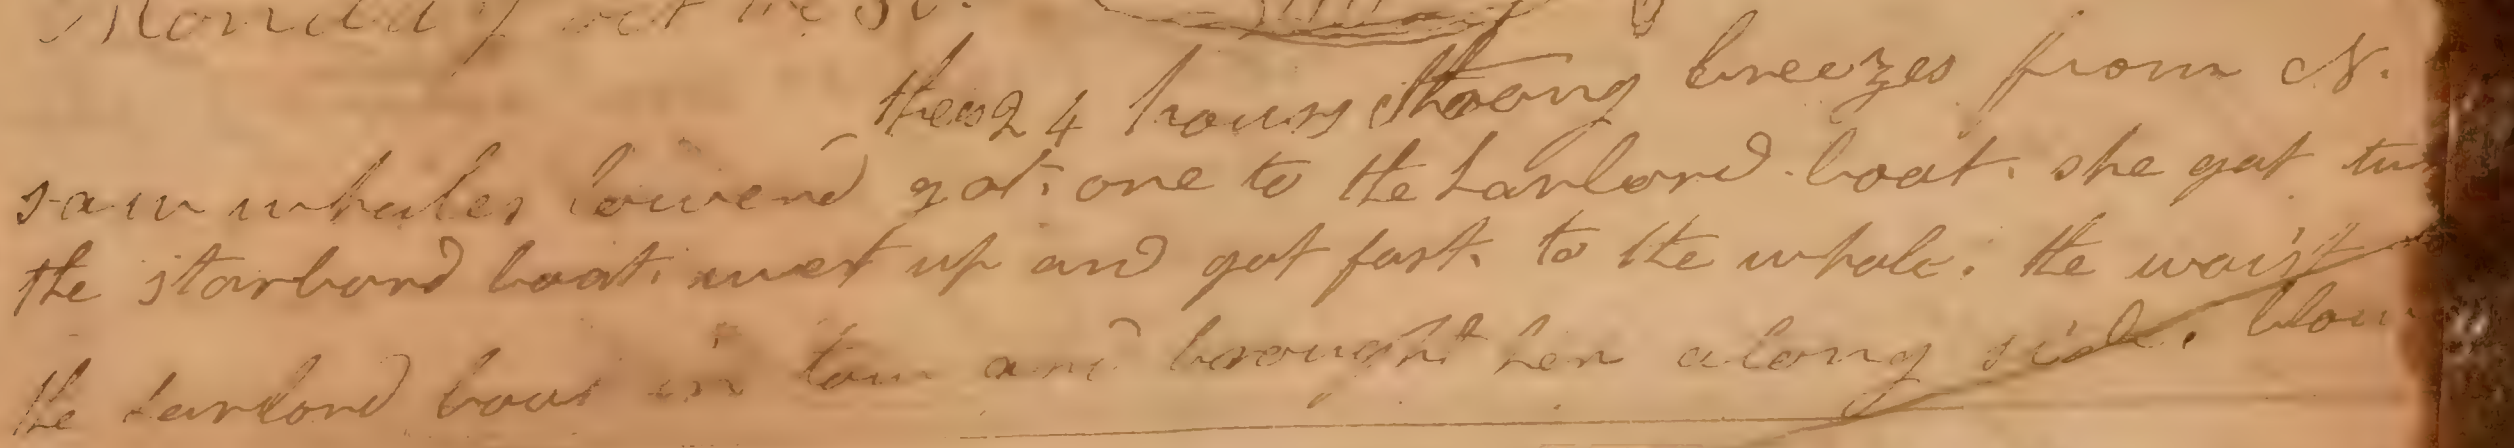 Monday oct the 30.
thes 24 hours strong breezes from N.
saw whales lowerd got one to the larbord boat. she got
the starbord boat. went up and got fast. to the whale. the waist
the larbord boat in tow and brought her along side. blow